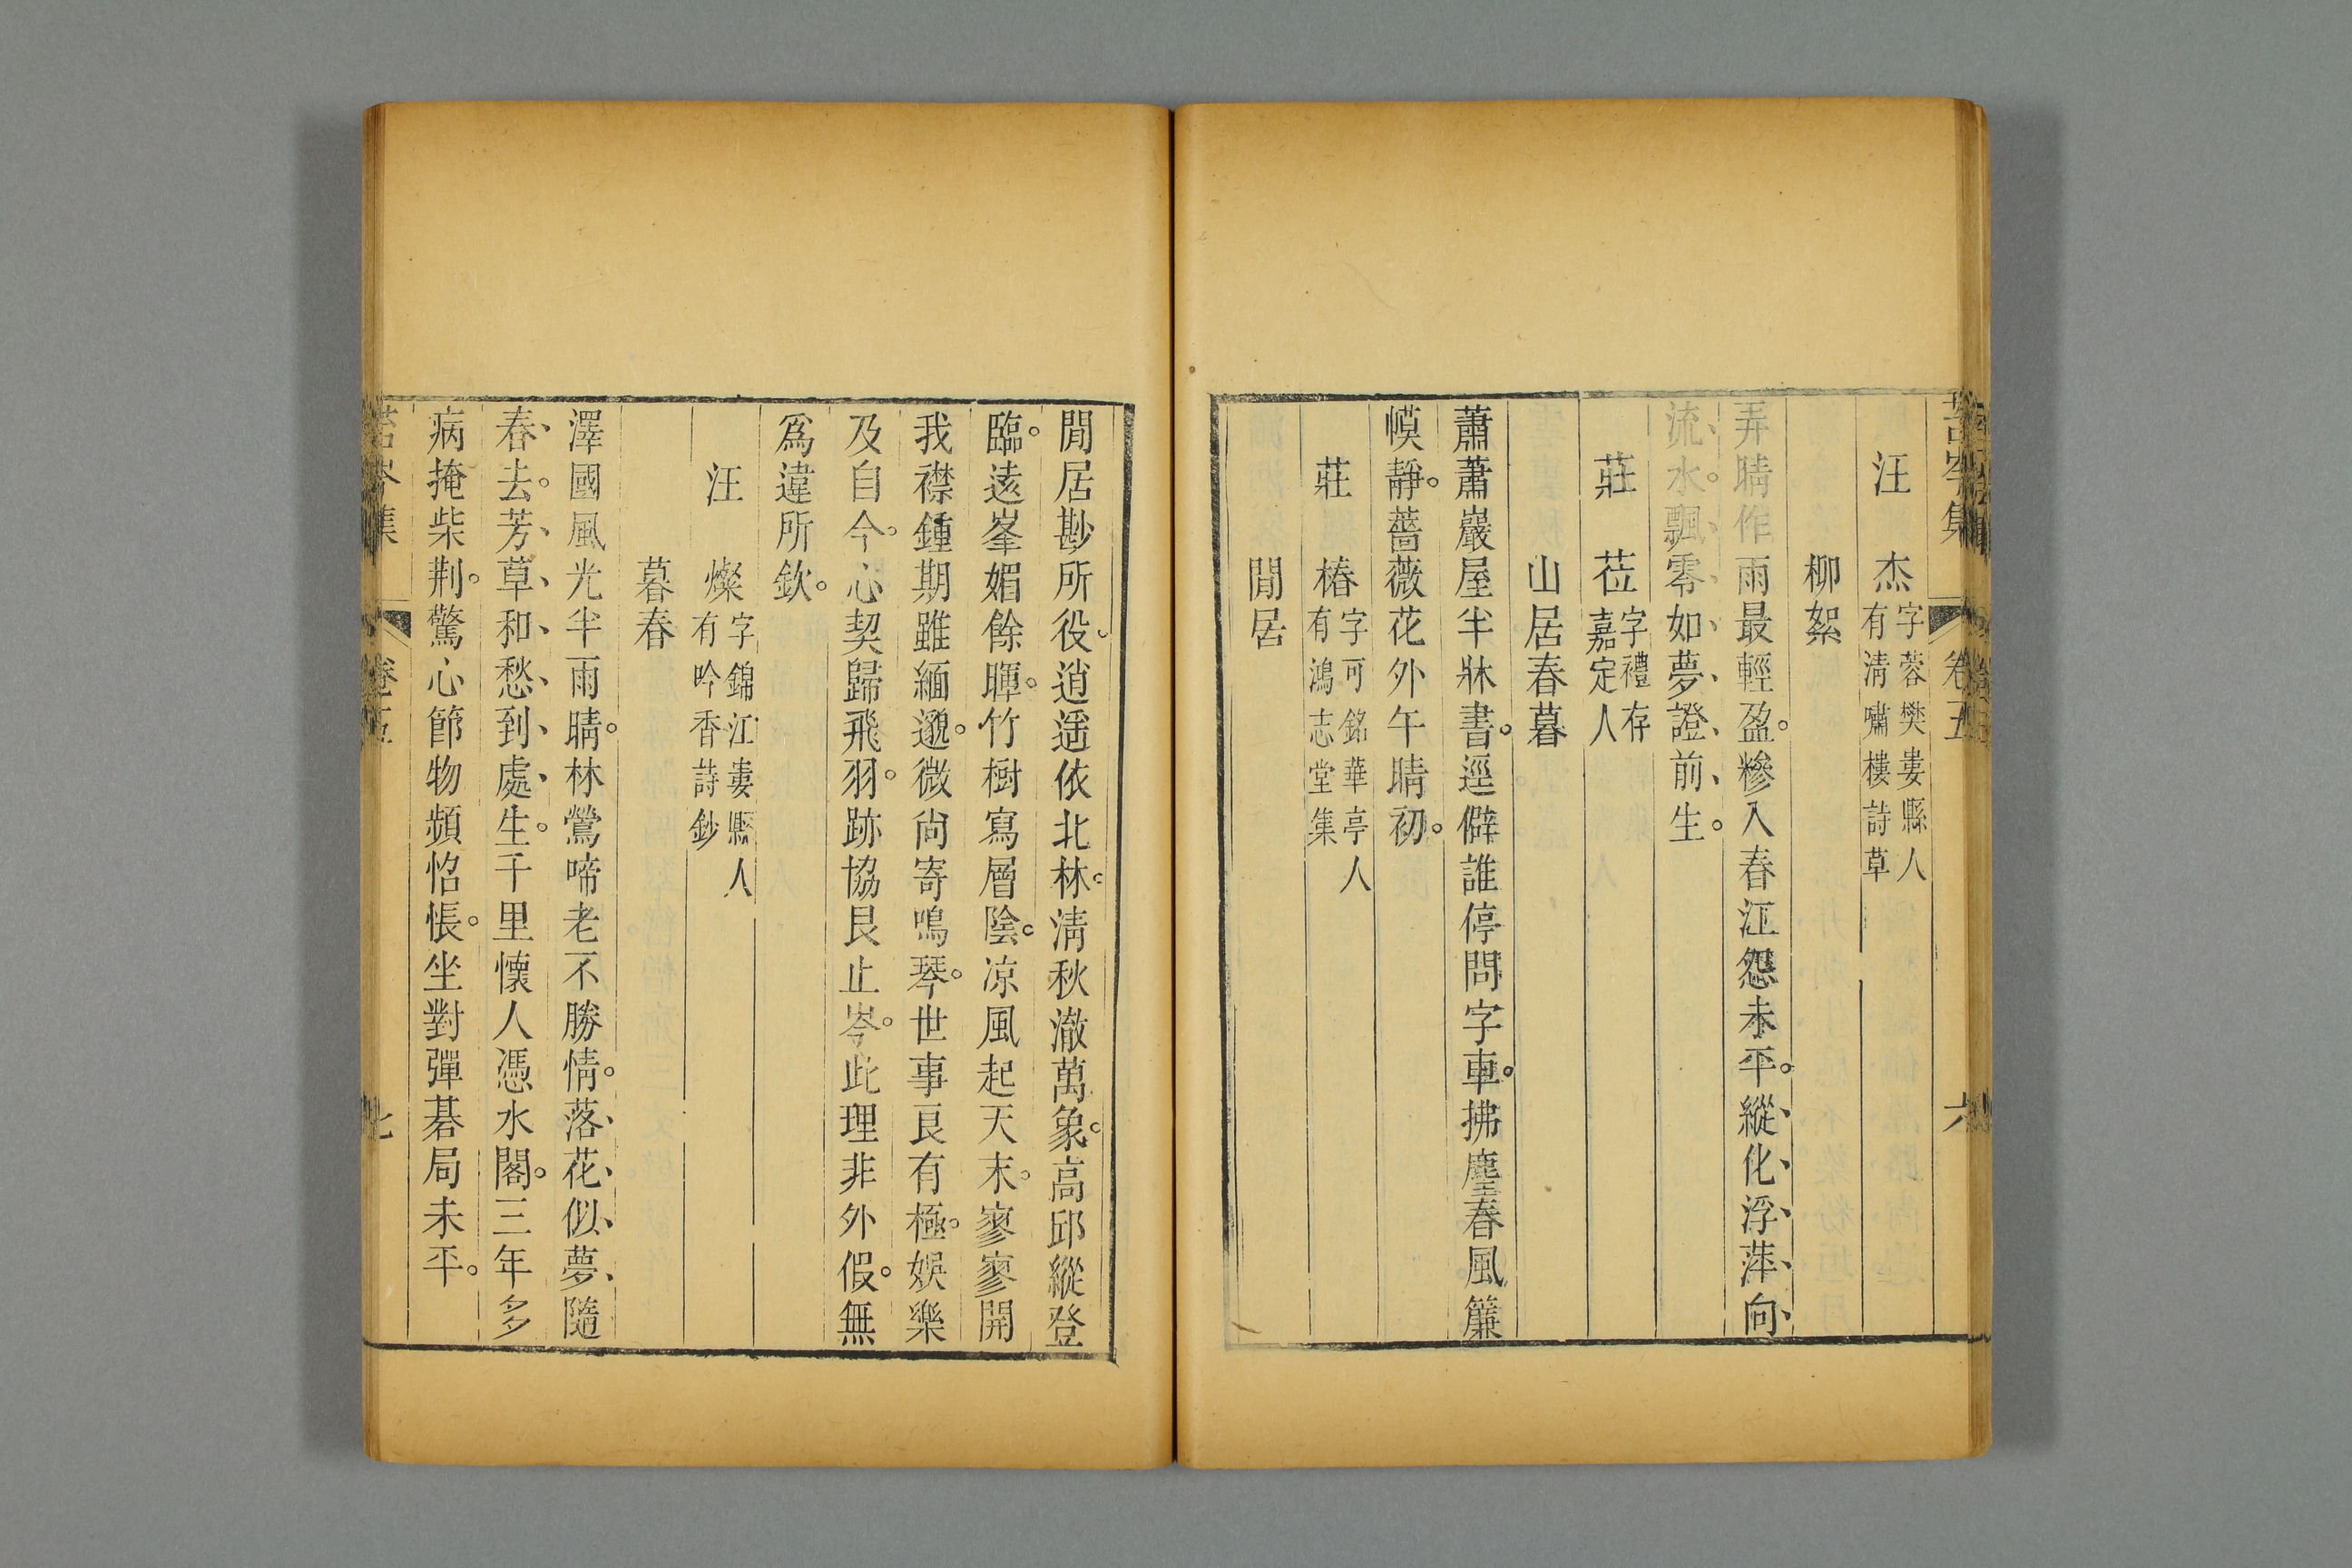 苔岑集 卷五 六
汪 杰 字蓉樊婁縣人
有清嘯樓詩草
柳絮
弄晴作雨最輕盈。糝入春江怨未平。縱化浮萍向
流水。飄零如夢證前生。
莊 莅 字禮存
嘉定人
山居春暮
蕭蕭巖屋半牀書。逕僻誰停問字車。拂塵春風簾
幙靜。薔薇花外午晴初。
莊 椿 字可銘華亭人
有鴻志堂集
閒居
閒居尠所役。逍遥依北林。清秋澈萬象。高邱縱登
臨。遠峯媚餘暉。竹樹寫層陰。凉風起天末。寥寥開
我襟。鍾期雖緬邈。微尙寄鳴琴。世事良有極。娛樂
及自今。心契歸飛羽。跡協艮止岑。此理非外假。無
爲違所欽。
汪 燦 字錦江婁縣人
有吟香詩鈔
暮春
澤國風光半雨晴。林鶯啼老不勝情。落花似夢隨
春去。芳草和愁到處生。千里懷人憑水閣。三年多
病掩柴荆。驚心節物頻怊悵。坐對彈碁局未平。
苔岑集 卷五 七